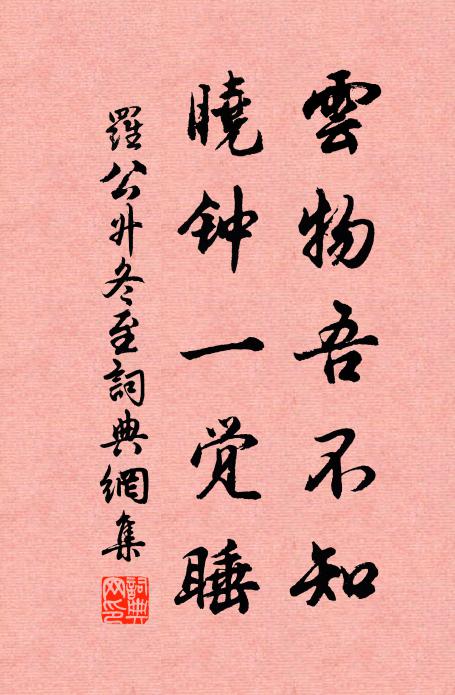 雲物吾不知
曉钟一觉睡
羅公升冬至詞典網集
詞典
网